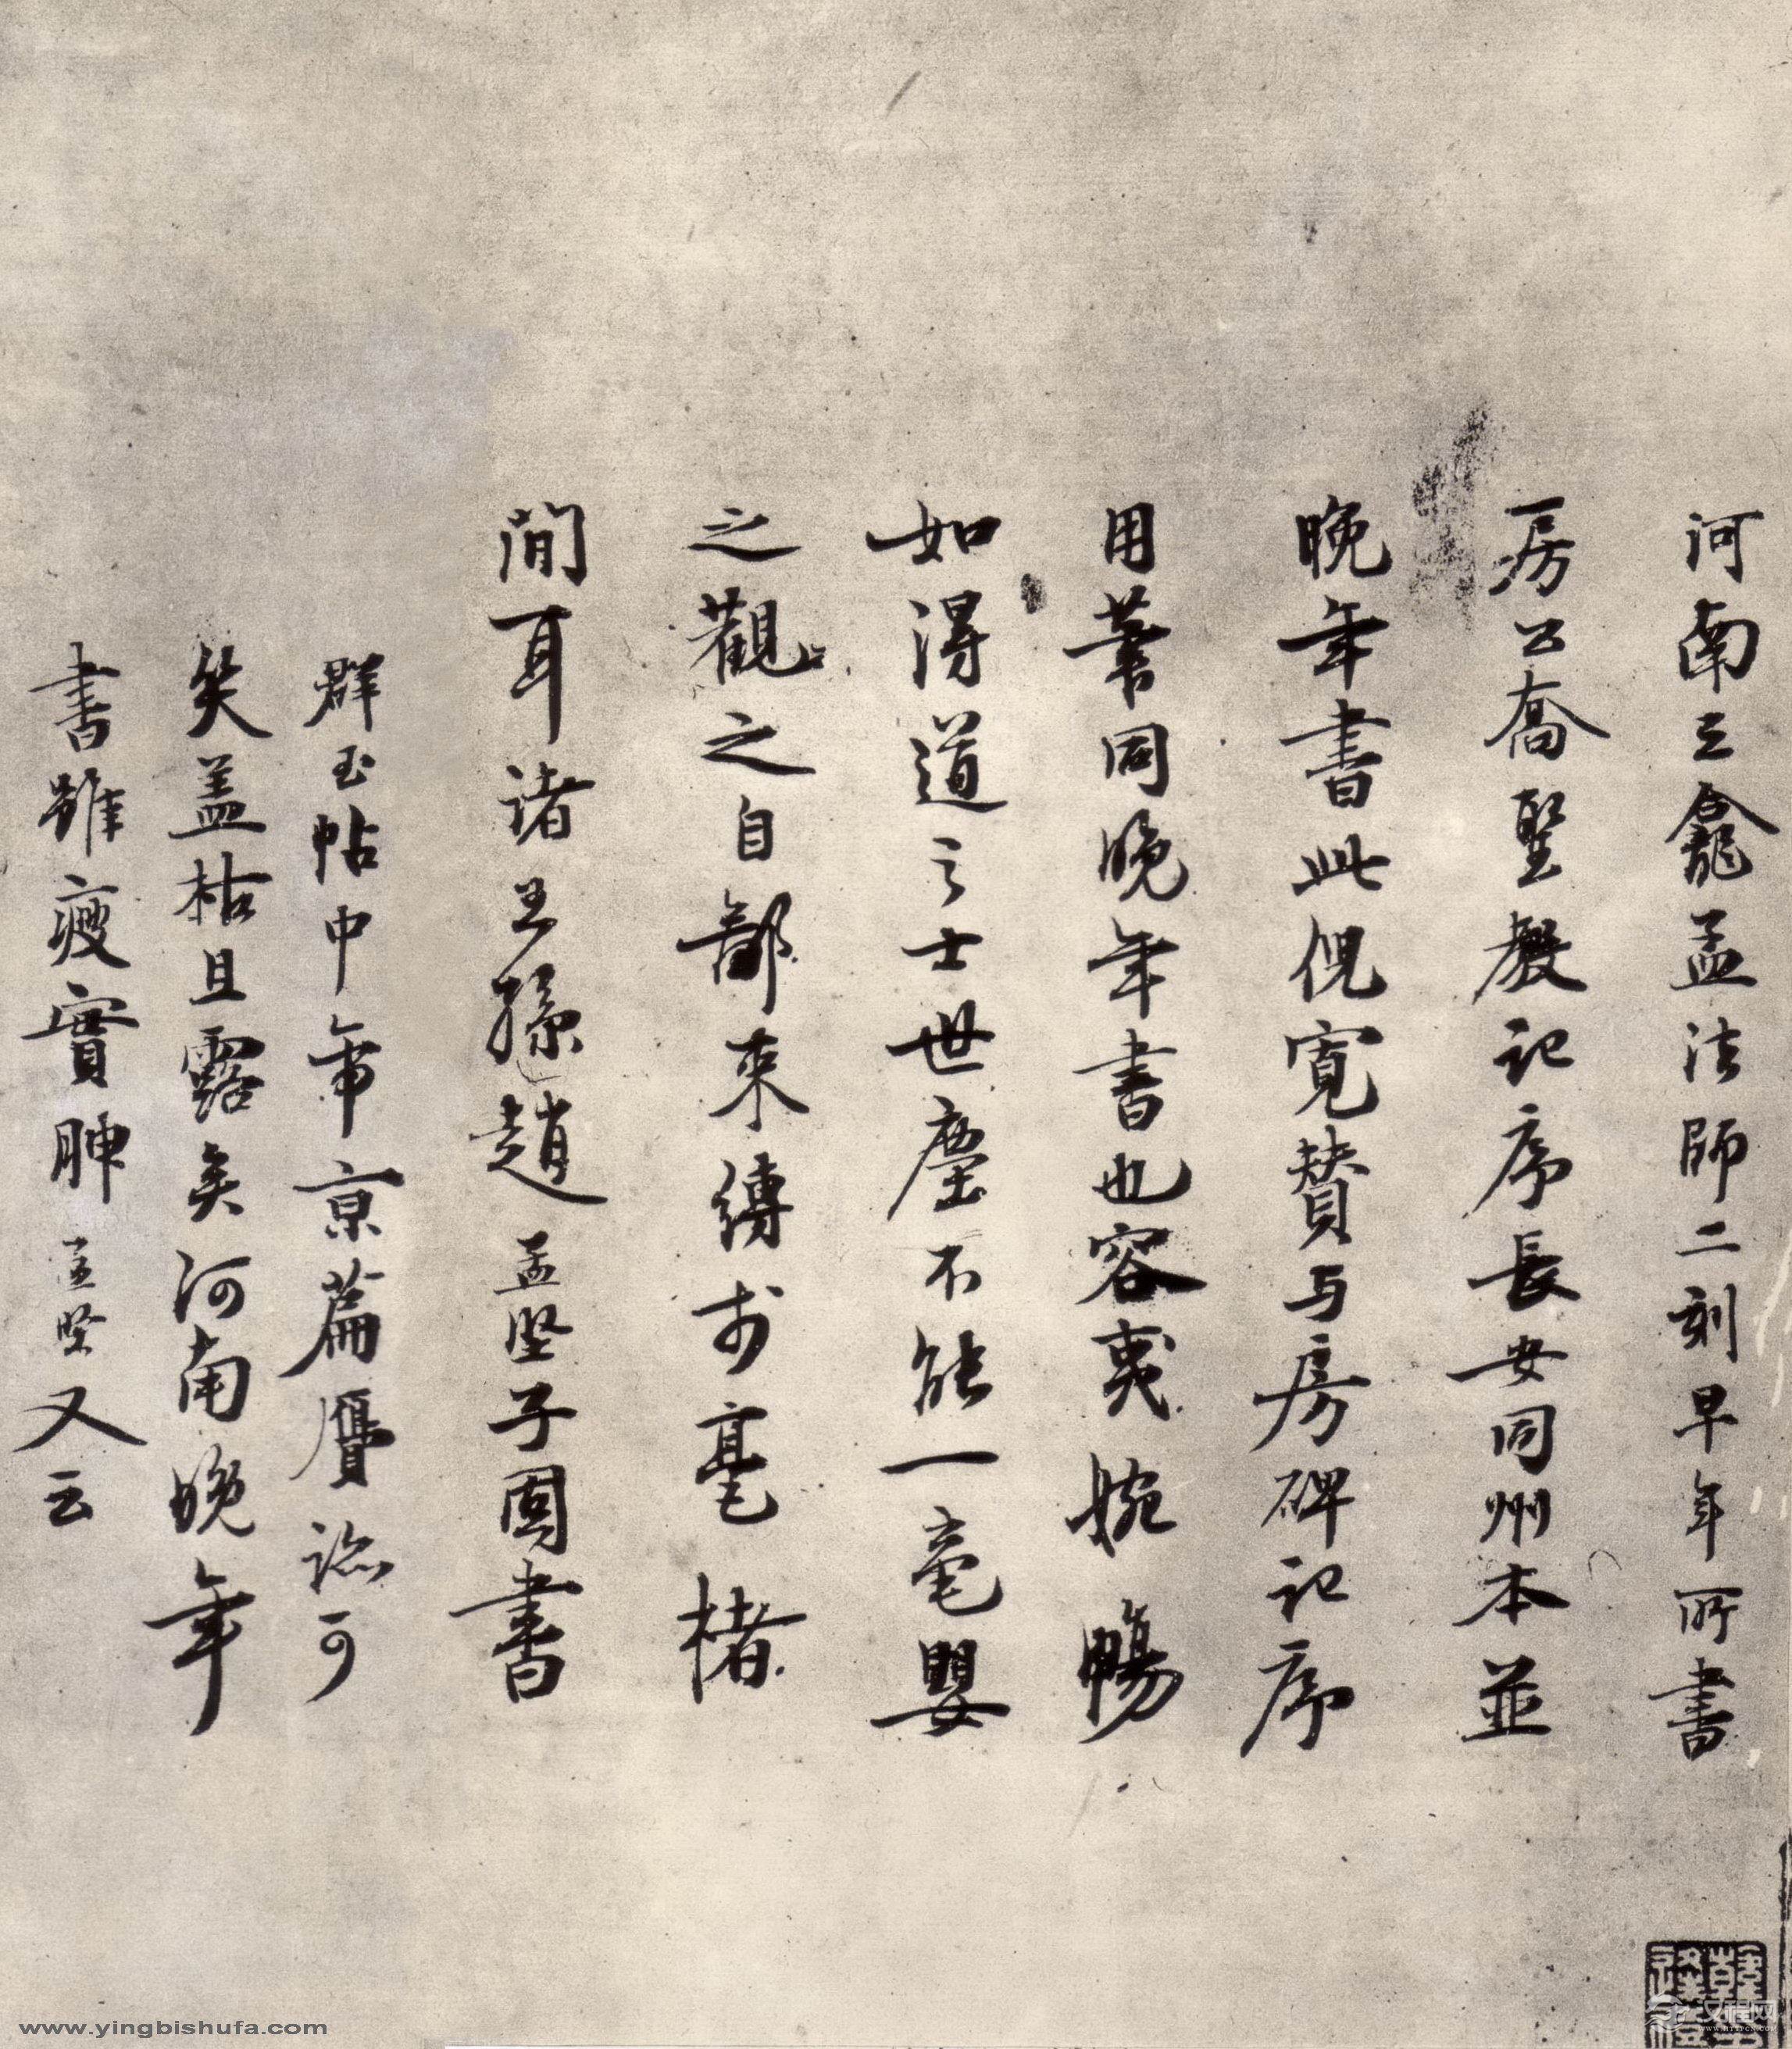 河南三龕孟法師二刻早年所書
房公喬聖教記序長安同州本並
晚年書此倪寬贊与房碑記序
用筆同晚年書也容夷婉暢
如得道之士世塵不能一毫嬰
之觀之自鄙來縛於毫楮
間耳諸王孫趙孟堅子固書
群玉帖中帝京篇贋迹可
笑盖枯且露矣河南晚年
書雖瘦實腴孟堅又云
www.yingbishufa.com
汉程网